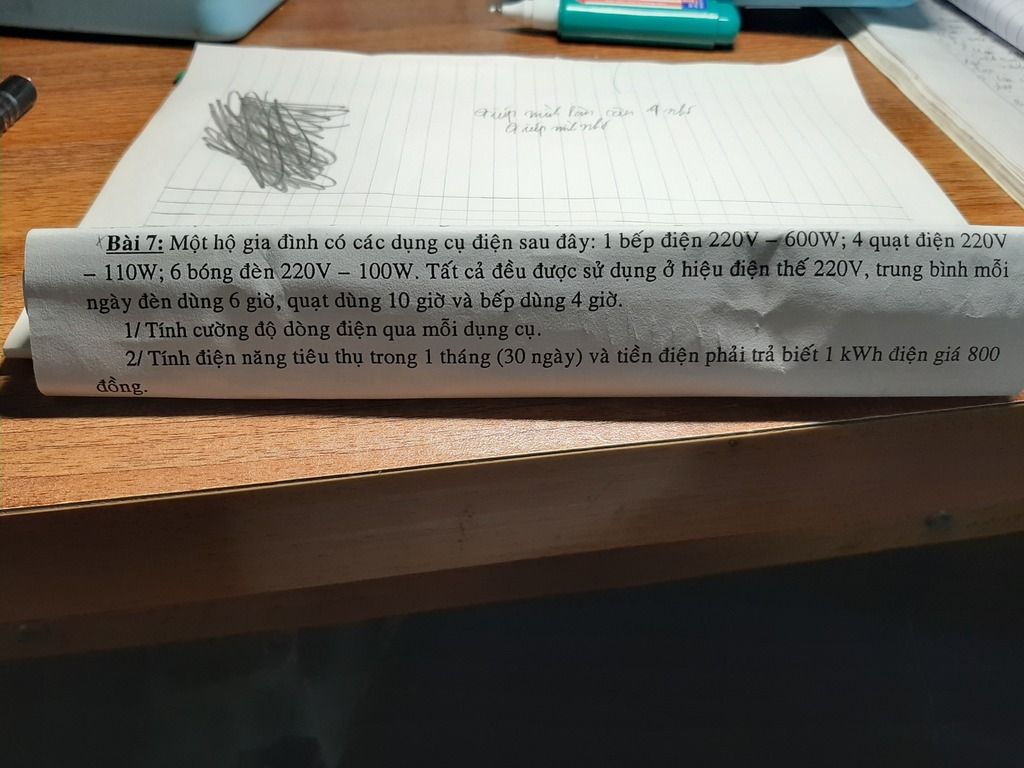 Giúp mình làm câu 4 nhó
Giúp mình nhó
Bài 7: Một hộ gia đình có các dụng cụ điện sau đây: 1 bếp điện 220V – 600W; 4 quạt điện 220V
– 110W; 6 bóng đèn 220V – 100W. Tất cả đều được sử dụng ở hiệu điện thế 220V, trung bình mỗi
ngày đèn dùng 6 giờ, quạt dùng 10 giờ và bếp dùng 4 giờ.
1/ Tính cường độ dòng điện qua mỗi dụng cụ.
2/ Tính điện năng tiêu thụ trong 1 tháng (30 ngày) và tiền điện phải trả biết 1 kWh điện giá 800
đồng.